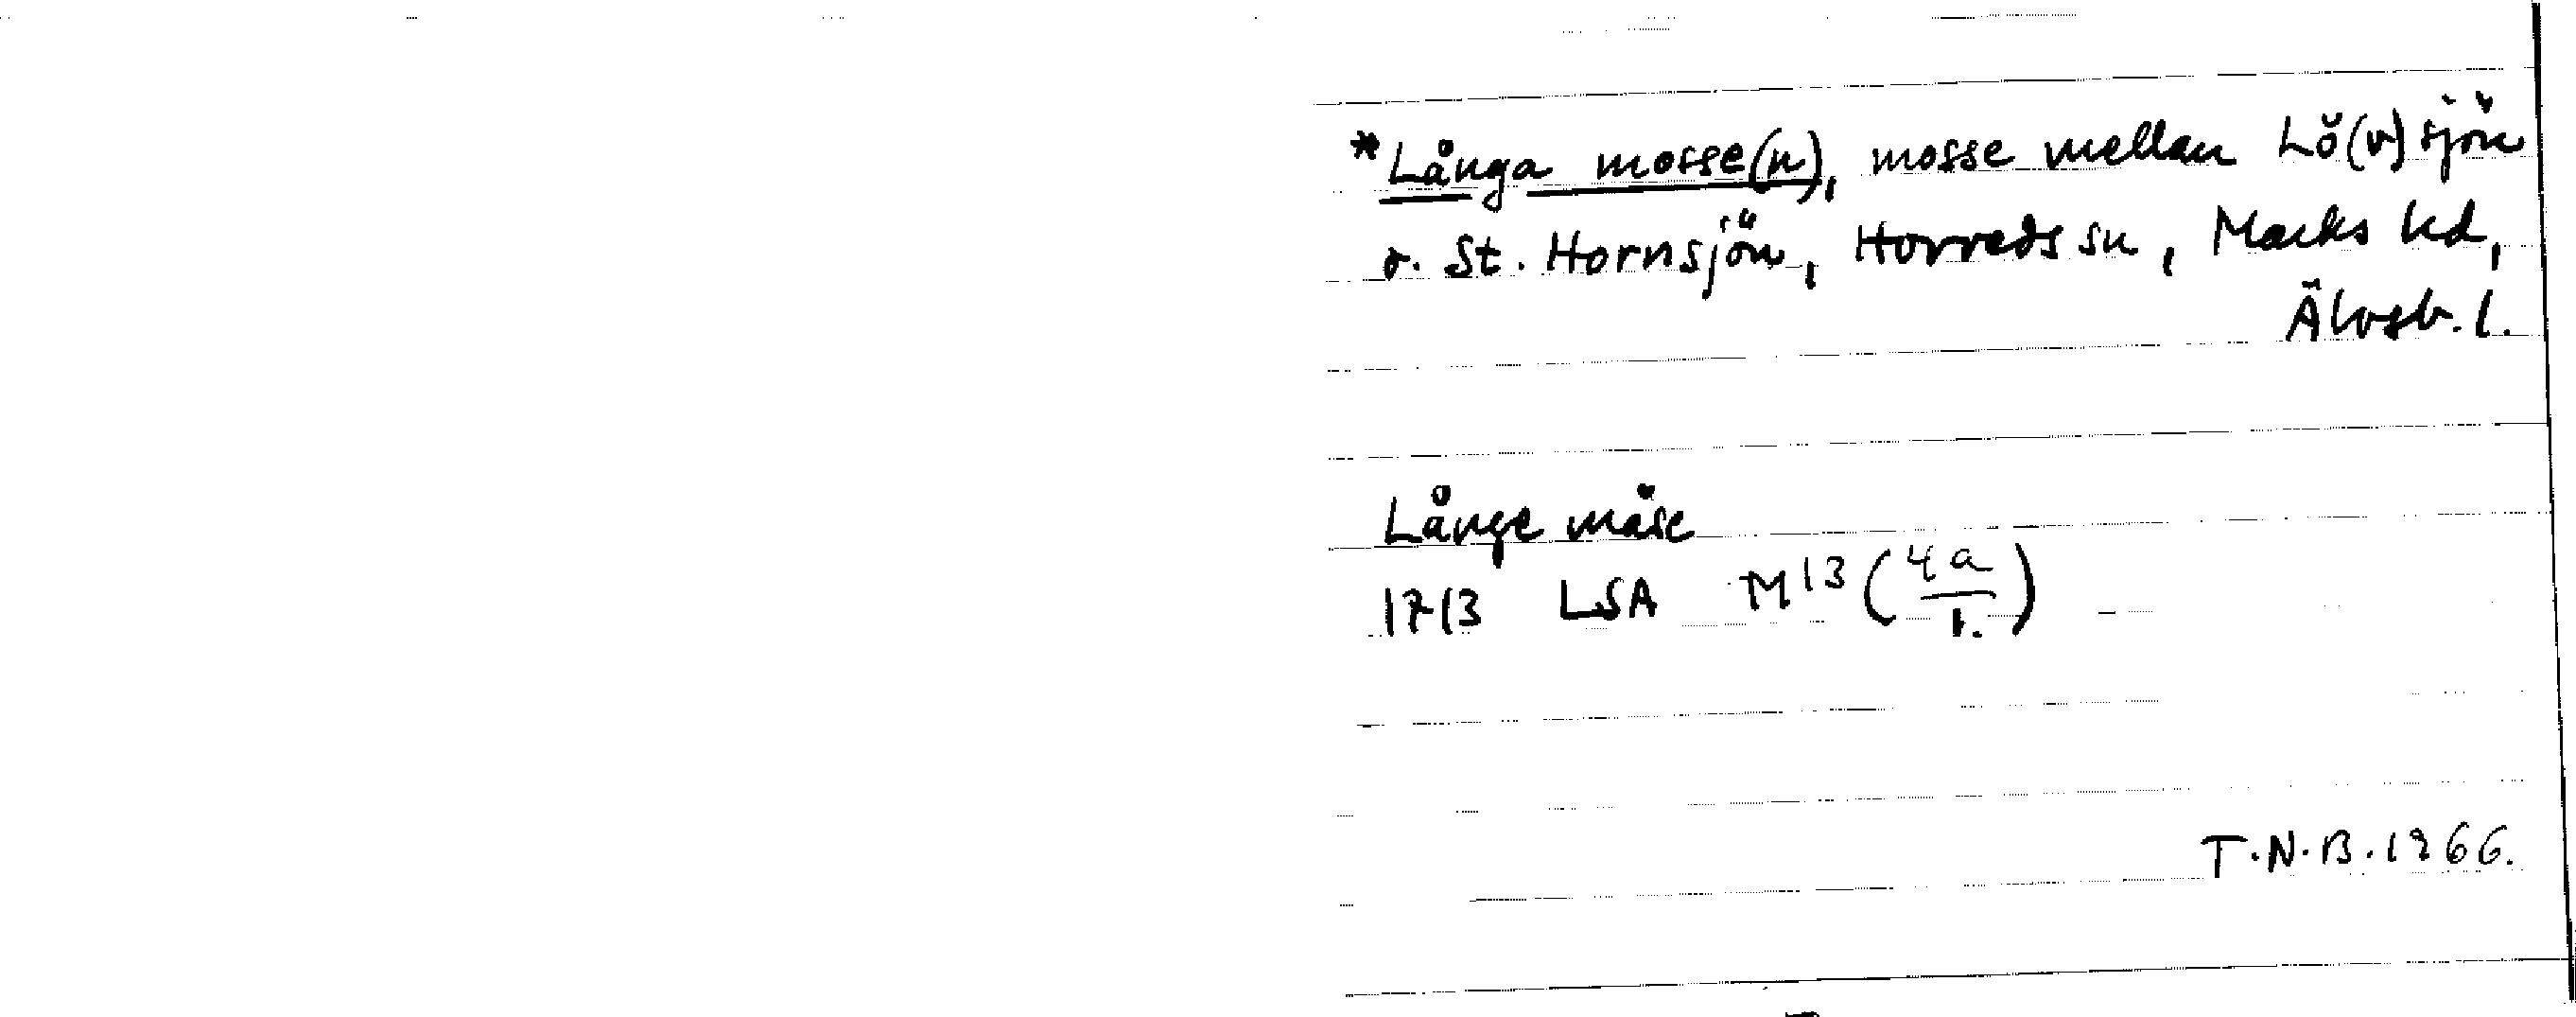 *Långa mosse(n), mosse mellan Lö(v)sjön
o. St. Hornsjön, Horreds sn, Marks hd,
Älvsb. l.
Långe måse
1713 LSA M13 (4a/1.)
T.N.B. 1966.